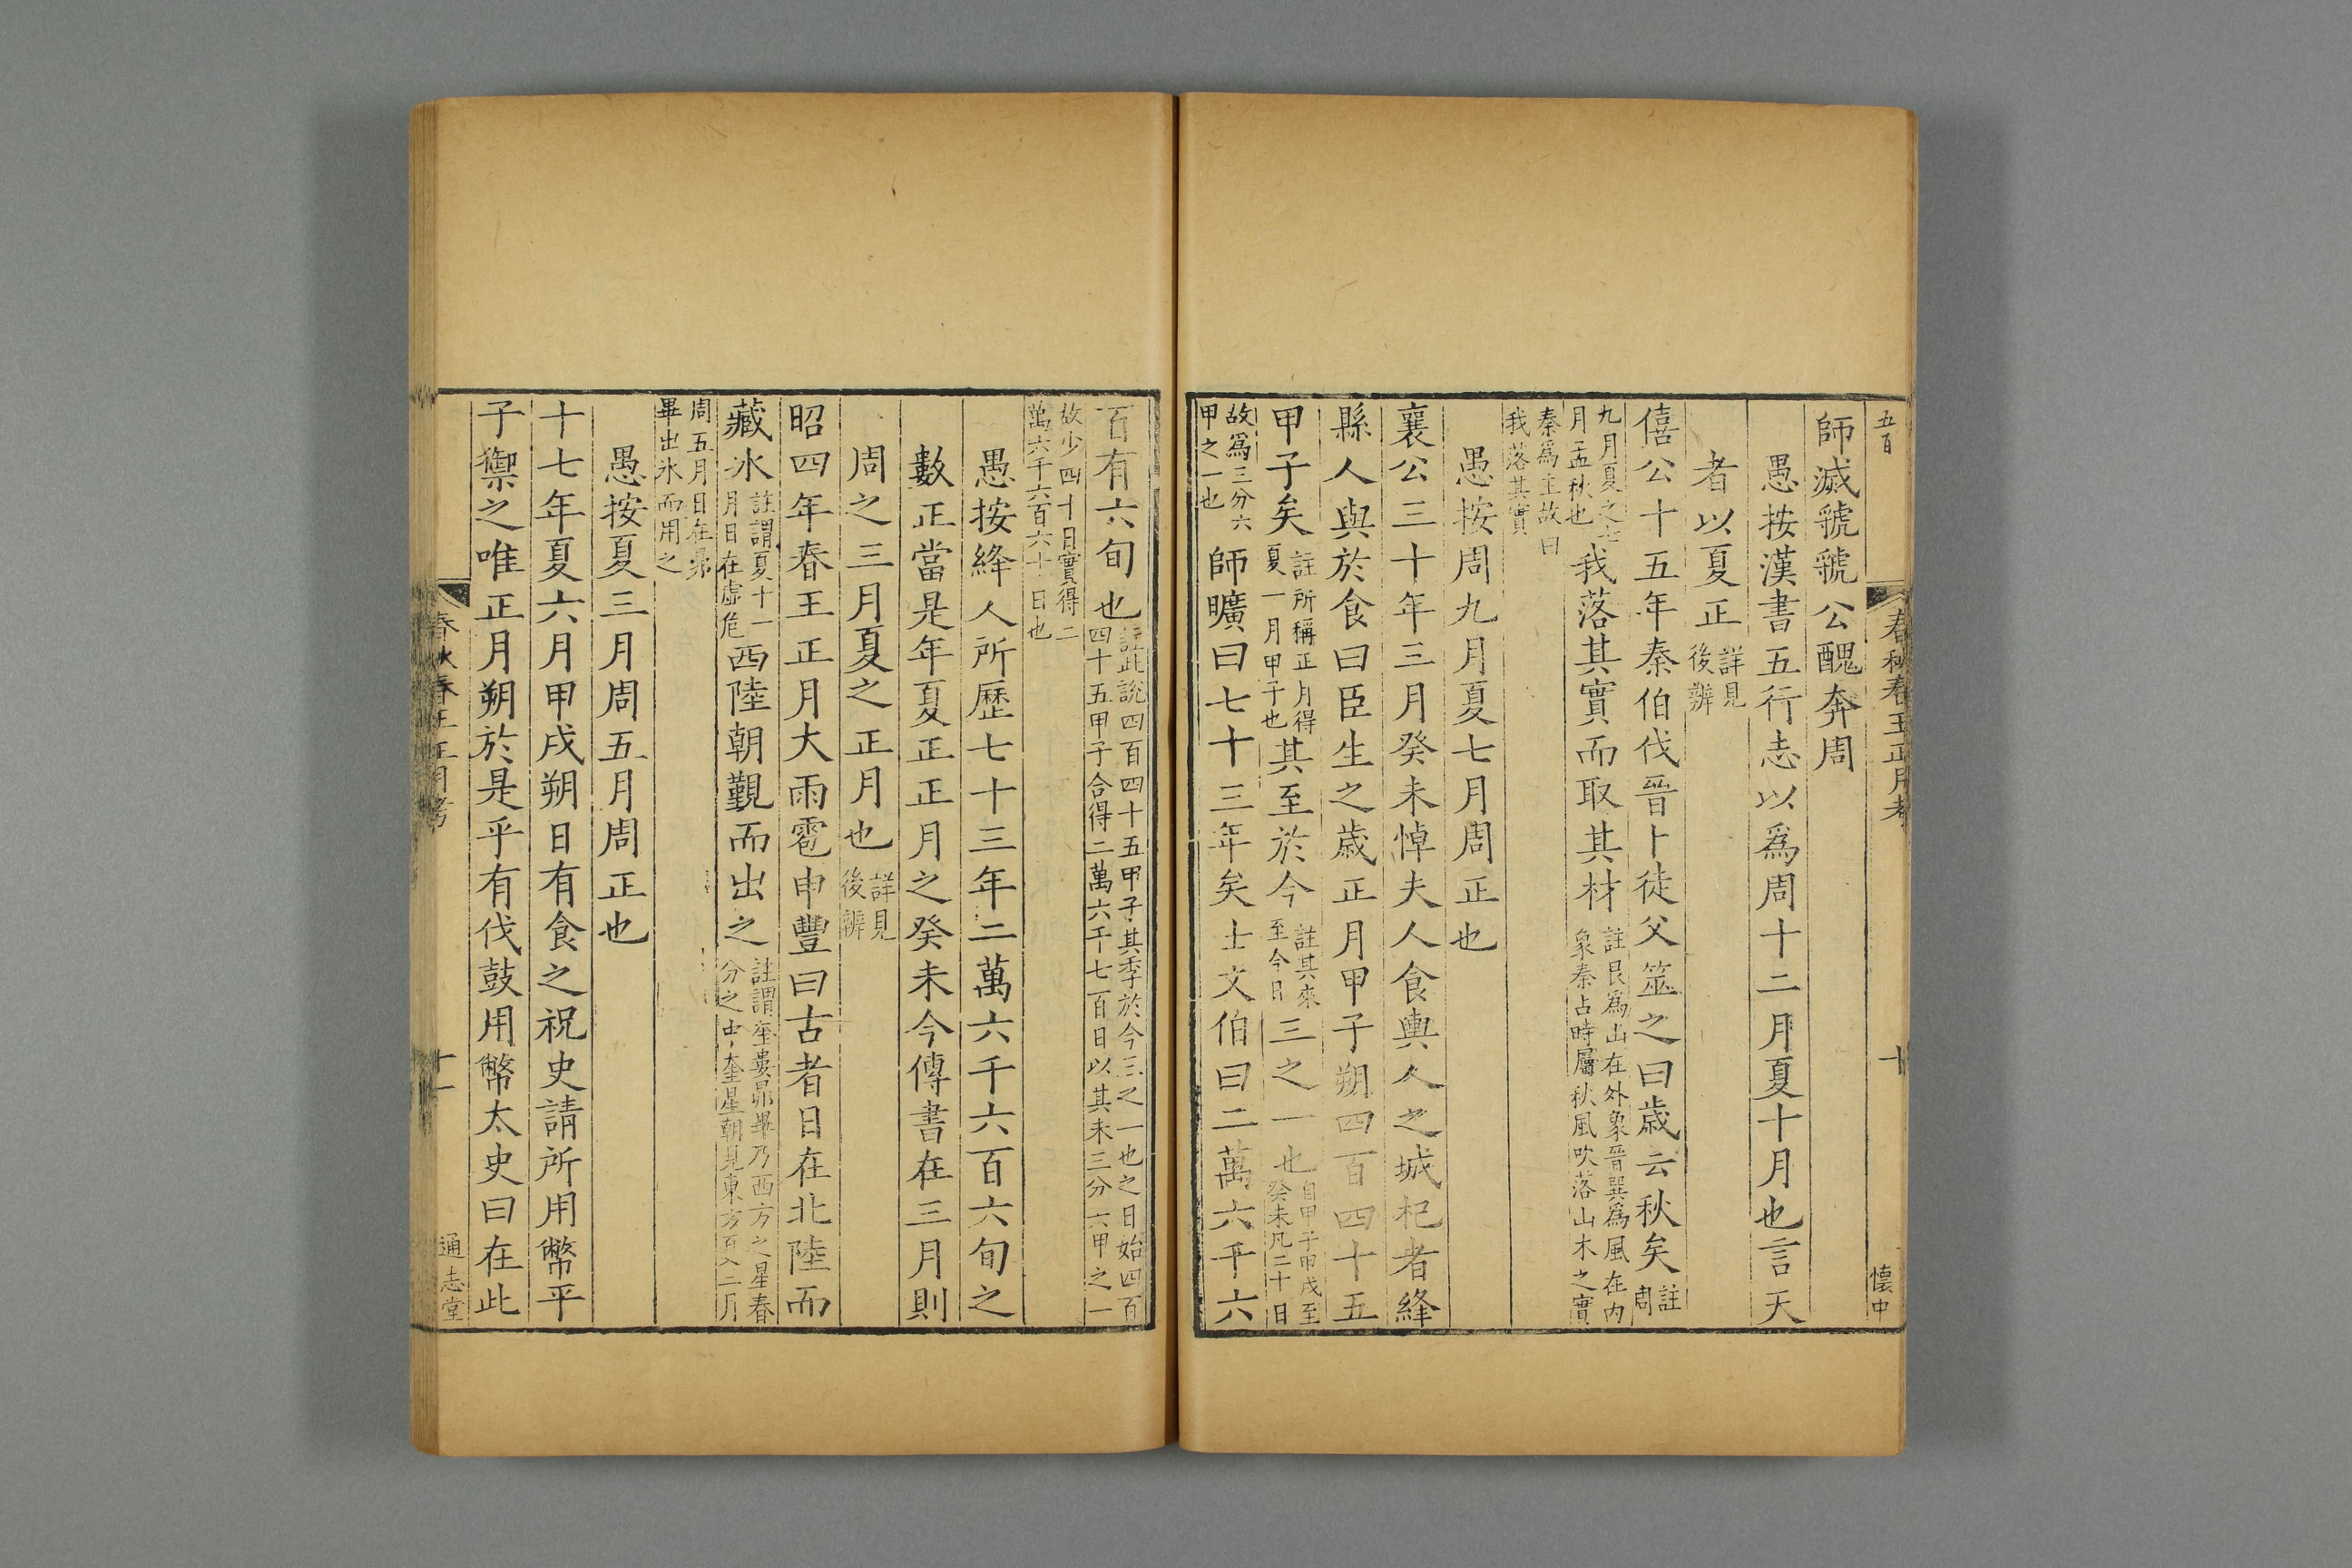 五百
春秋春王正月考
十
懐中
師滅虢虢公醜奔周
愚按漢書五行志以爲周十二月夏十月也言天
者以夏正詳見後辨
僖公十五年秦伯伐晉卜徒父筮之曰歲云秋矣註周
九月夏之七月孟秋也我落其實而取其材註艮爲山在外象晉巽爲風在內象秦占時屬秋風吹落山木之實
秦爲主故曰我落其實
愚按周九月夏七月周正也
襄公三十年三月癸未悼夫人食輿人之城杞者絳
縣人與於食曰臣生之歲正月甲子朔四百四十五
甲子矣註所稱正月得夏一月甲子也其至於今註其來至今日三之一也自甲子甲戌至癸未凡二十日
故爲三分六甲之一也師曠曰七十三年矣士文伯曰二萬六千六
百有六旬也註此說四百四十五甲子其季於今三之一也之日始四百四十五甲子合得二萬六千七百日以其未三分六甲之一
故少四十日實得二萬六千六百六十日也
愚按絳人所歷七十三年二萬六千六百六旬之
數正當是年夏正正月之癸未今傳書在三月則
周之三月夏之正月也詳見後辨
昭四年春王正月大雨雹申豐曰古者日在北陸而
藏氷註謂夏十一月日在虛危西陸朝覿而出之註謂奎婁昴畢乃西方之星春分之中奎星朝見東方夏八二月
周五月日在昴畢出氷而用之
愚按夏三月周五月周正也
十七年夏六月甲戌朔日有食之祝史請所用幣平
子禦之唯正月朔於是乎有伐鼓用幣太史曰在此
春秋春王正月考
十一
通志堂